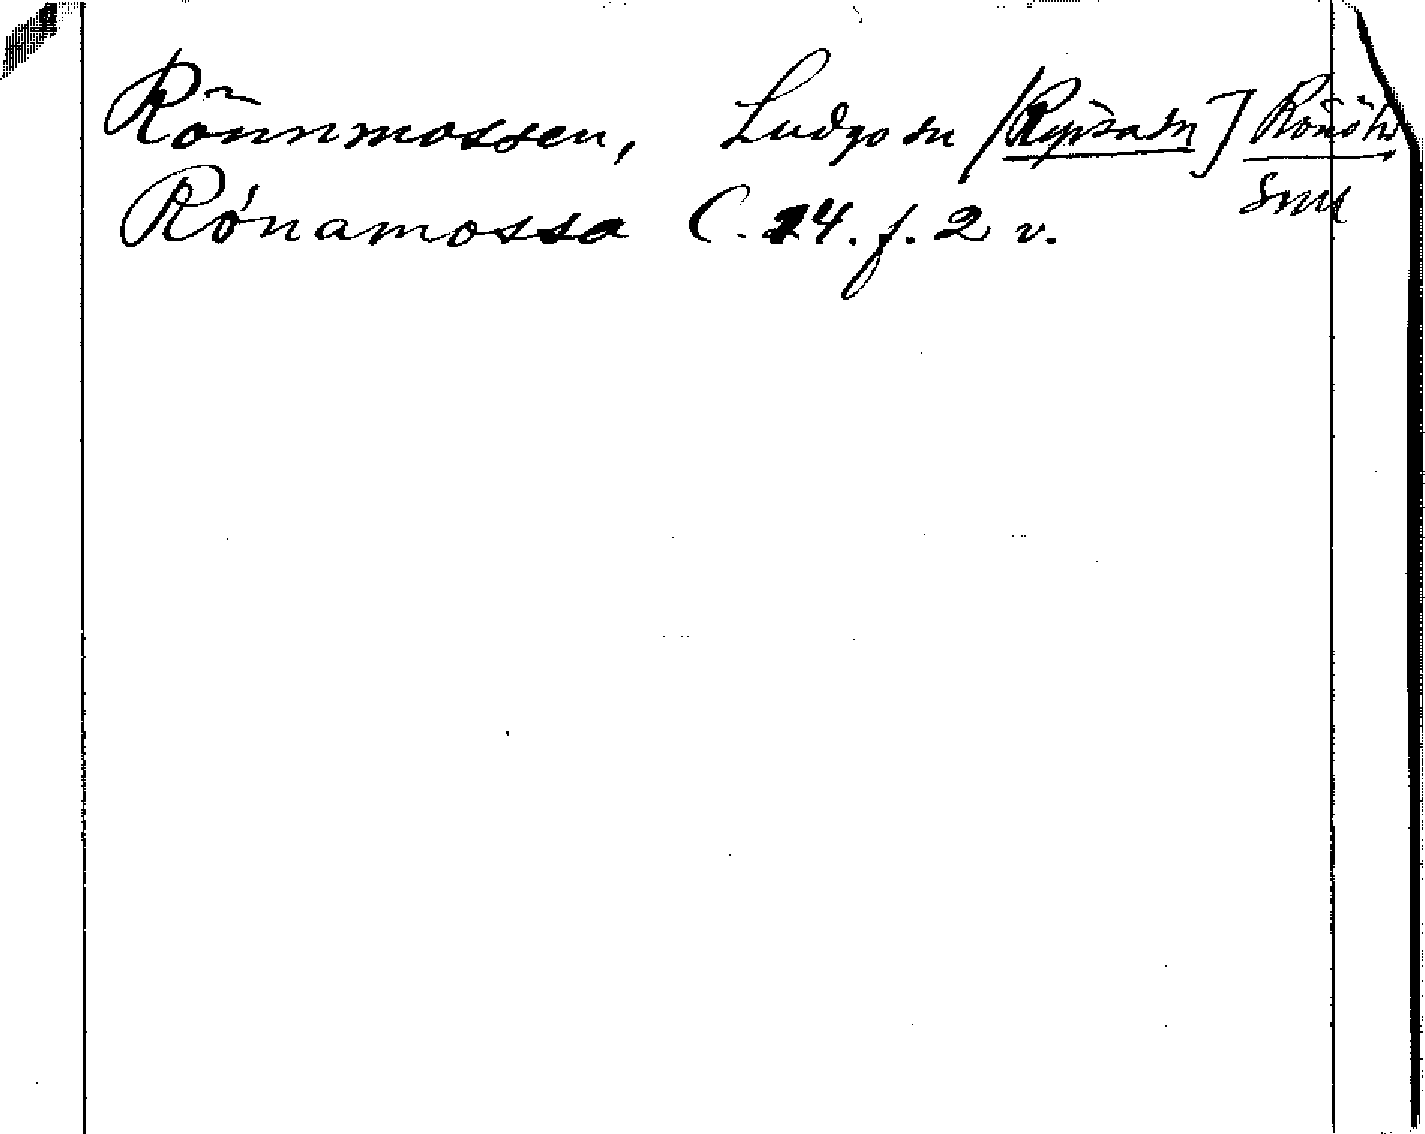 Rönnmossen, Ludgo sn [Rypsasn] Rönö hd
Sml
Rónamossa C. 24. f. 2 v.